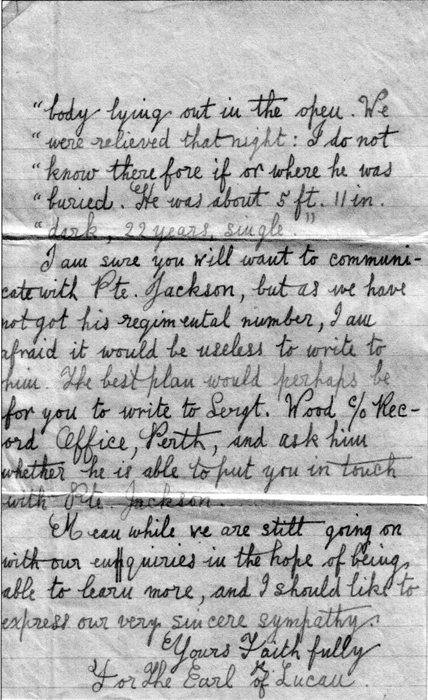 "body lying out in the open. We
"were relieved that night: I do not
"know therefore if or where he was
"buried. He was about 5 ft. 11 in.
"dark, 22 years, single."
I am sure you will want to communi-
cate with Pte. Jackson, but as we have
not got his regimental number, I am
afraid it would be useless to write to
him. The best plan would perhaps be
for you to write to Sergt. Wood c/o Rec-
ord Office, Perth, and ask him
whether he is able to put you in touch
with Pte. Jackson.
Mean while we are still going on
with our enquiries in the hope of being
able to learn more, and I should like to
express our very sincere sympathy.
Yours Faithfully
For The Earl of Lucan.